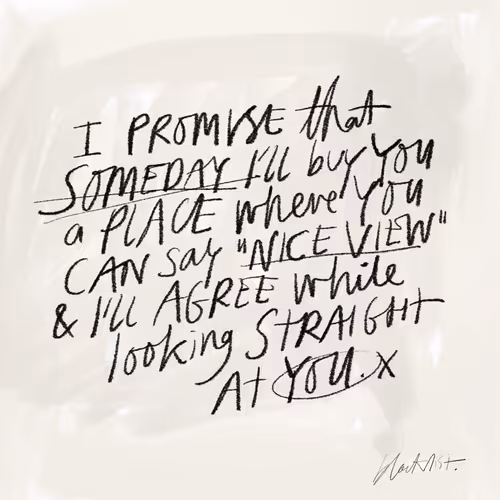 I PROMISE that
SOMEDAY I'll buy you
a PLACE where you
CAN say "NICE VIEW"
& I'll AGREE while
looking STRAIGHT
At YOU. x